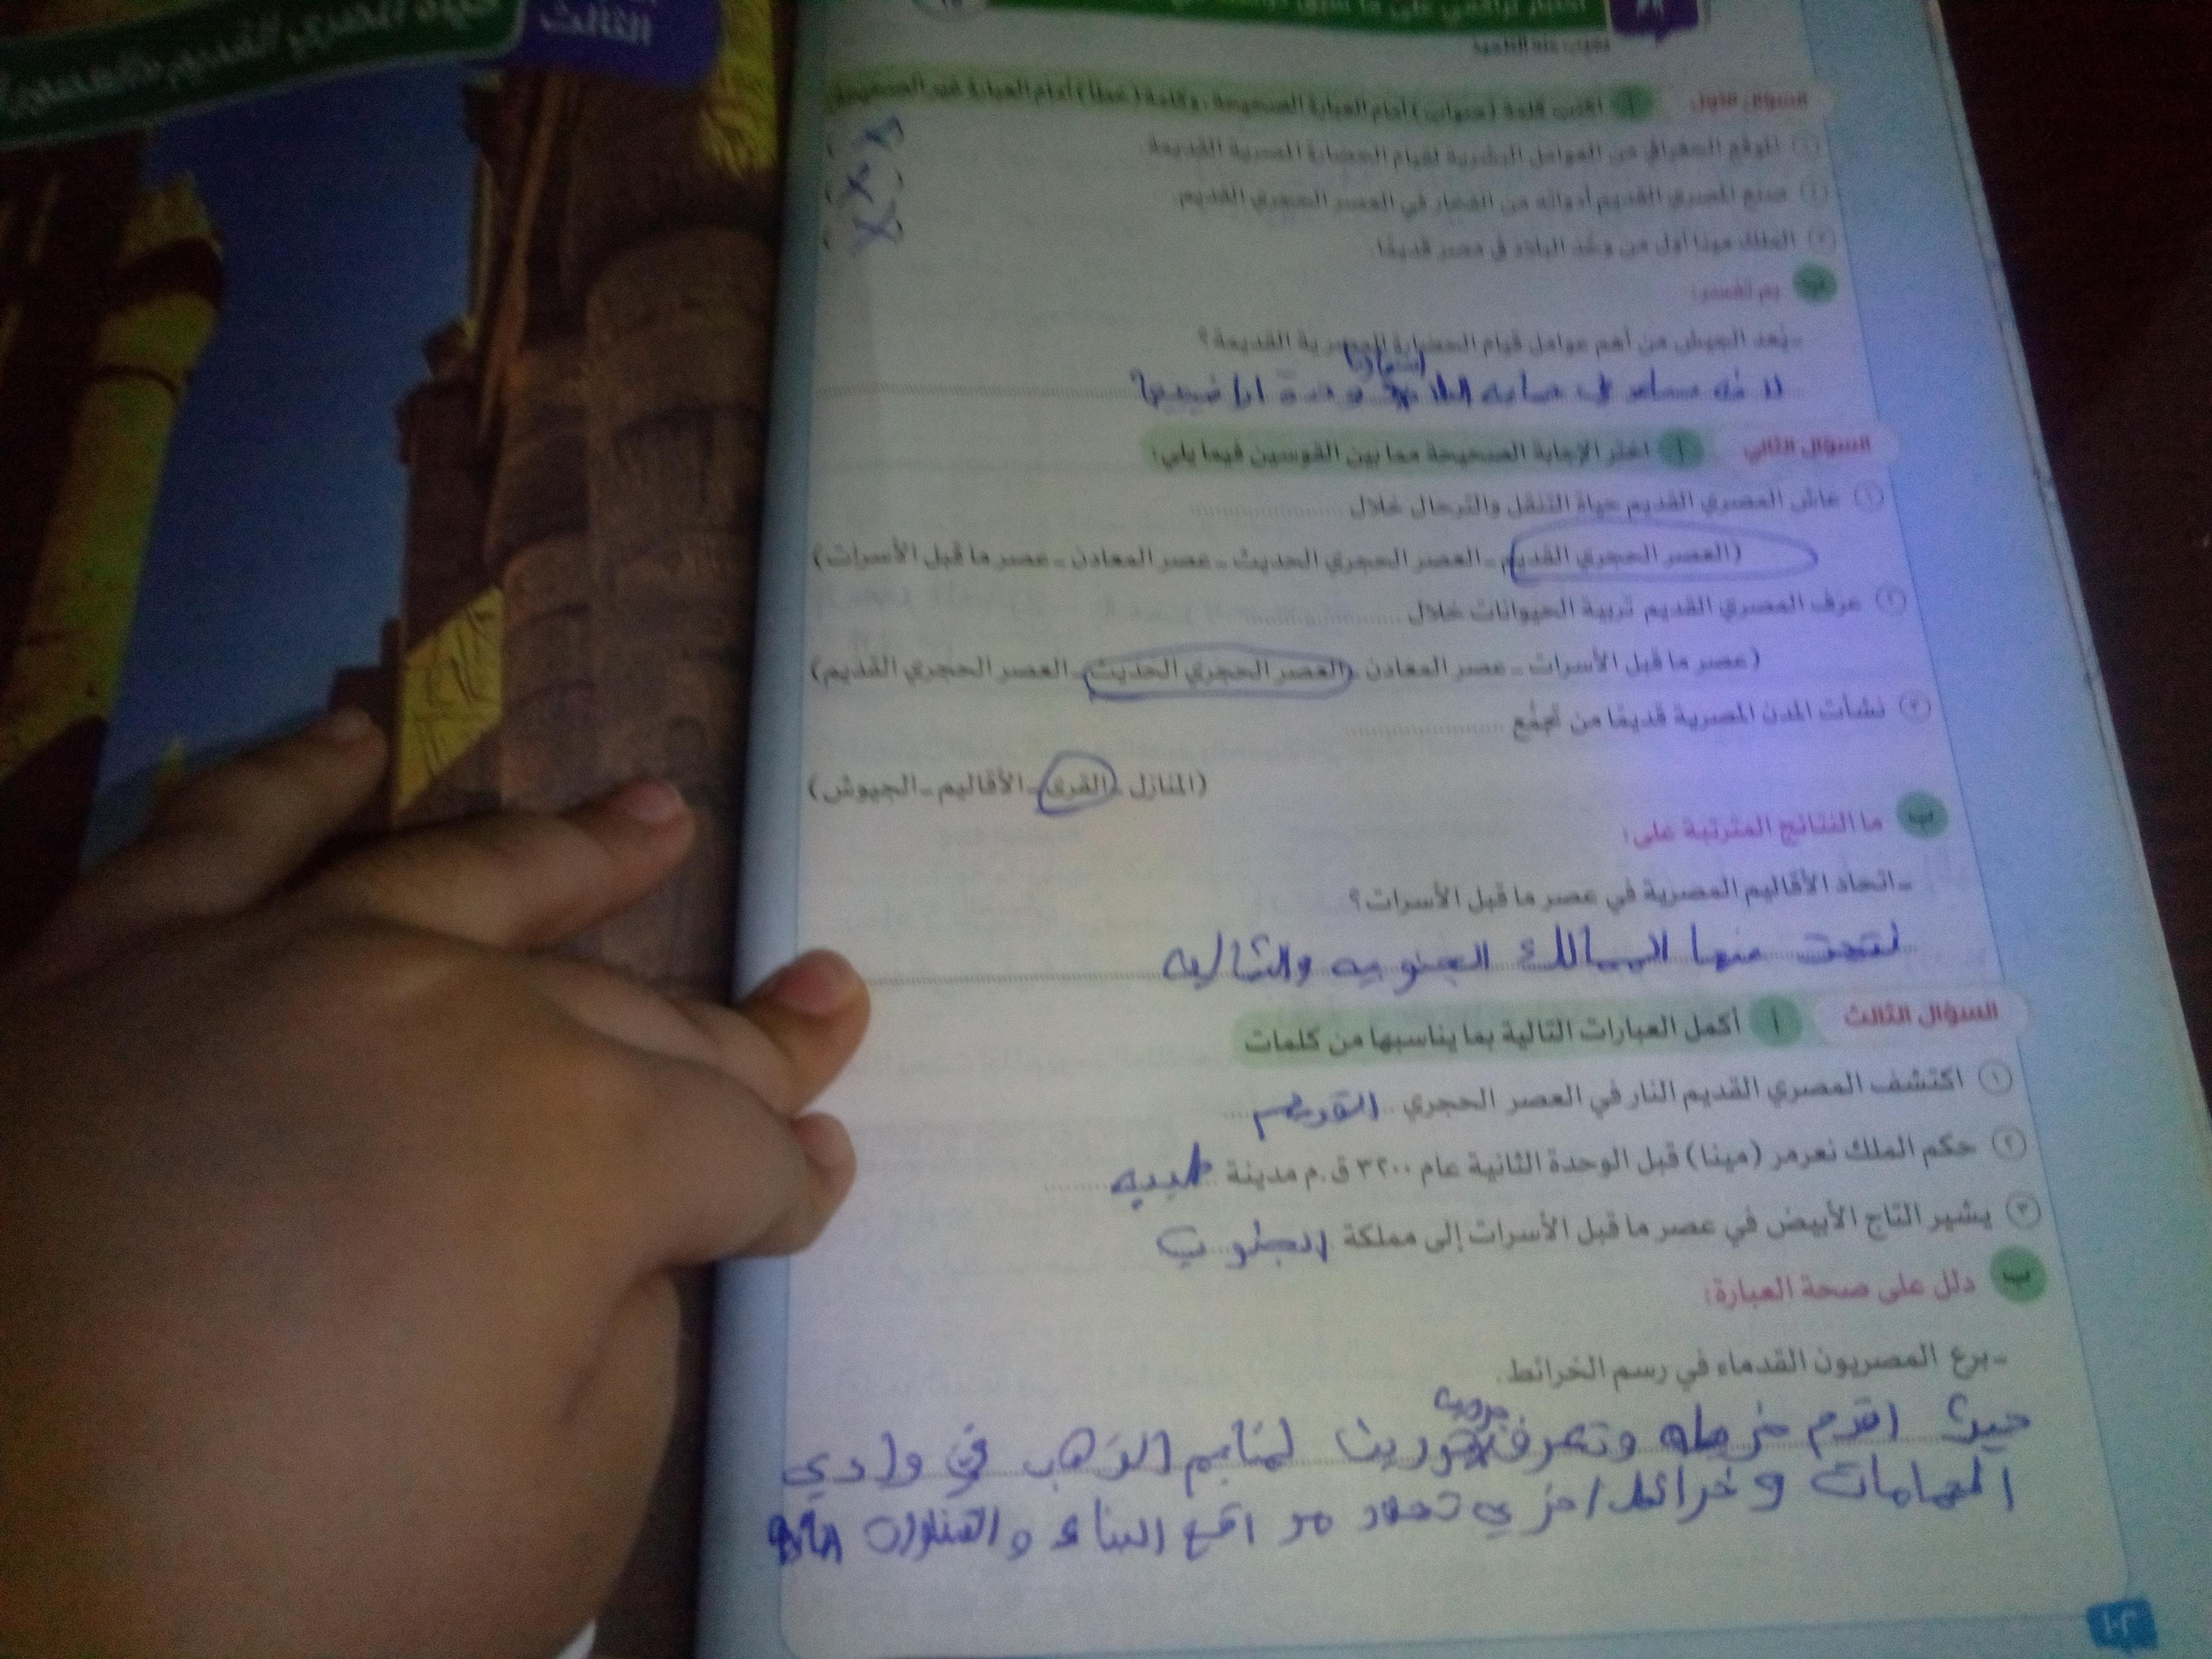 الثالث
السؤال الأول أ اكتب كلمة (صواب) أمام العبارة الصحيحة، وكلمة (خطأ) أمام العبارة غير الصحيحة:
① الموقع الجغرافي من العوامل البشرية لقيام الحضارة المصرية القديمة. (X)
② صنع المصري القديم أدواته من الفخار في العصر الحجري القديم. (X)
③ الملك مينا أول من وحد البلاد في مصر قديمًا. (X)
ب بم تفسر:
- يُعد الجيش من أهم عوامل قيام الحضارة المصرية القديمة؟
السؤال الثاني أ اختر الإجابة الصحيحة مما بين القوسين فيما يلي:
① عاش المصري القديم حياة التنقل والترحال خلال ..........
(العصر الحجري القديم - العصر الحجري الحديث - عصر المعادن - عصر ما قبل الأسرات)
② عرف المصري القديم تربية الحيوانات خلال ..........
(عصر ما قبل الأسرات - عصر المعادن - العصر الحجري الحديث - العصر الحجري القديم)
③ نشأت المدن المصرية قديمًا من تجمُّع ..........
(المنازل - القرى - الأقاليم - الجيوش)
ب ما النتائج المترتبة على:
- اتحاد الأقاليم المصرية في عصر ما قبل الأسرات؟
نتجت منها الجنوبيه
السؤال الثالث أ أكمل العبارات التالية بما يناسبها من كلمات
① اكتشف المصري القديم النار في العصر الحجري القديم
② حكم الملك نعرمر (مينا) قبل الوحدة الثانية عام ٣٢٠٠ ق.م مدينة طيبه
③ يشير التاج الأبيض في عصر ما قبل الأسرات إلى مملكة الجنوب
ب دلل على صحة العبارة:
- برع المصريون القدماء في رسم الخرائط.
حيث اقدم خريطه وتعرف برديه تورين لمناجم الذهب في وادي
الحمامات و خرائط اخري تحدد مواقع البناء و
١٠٢